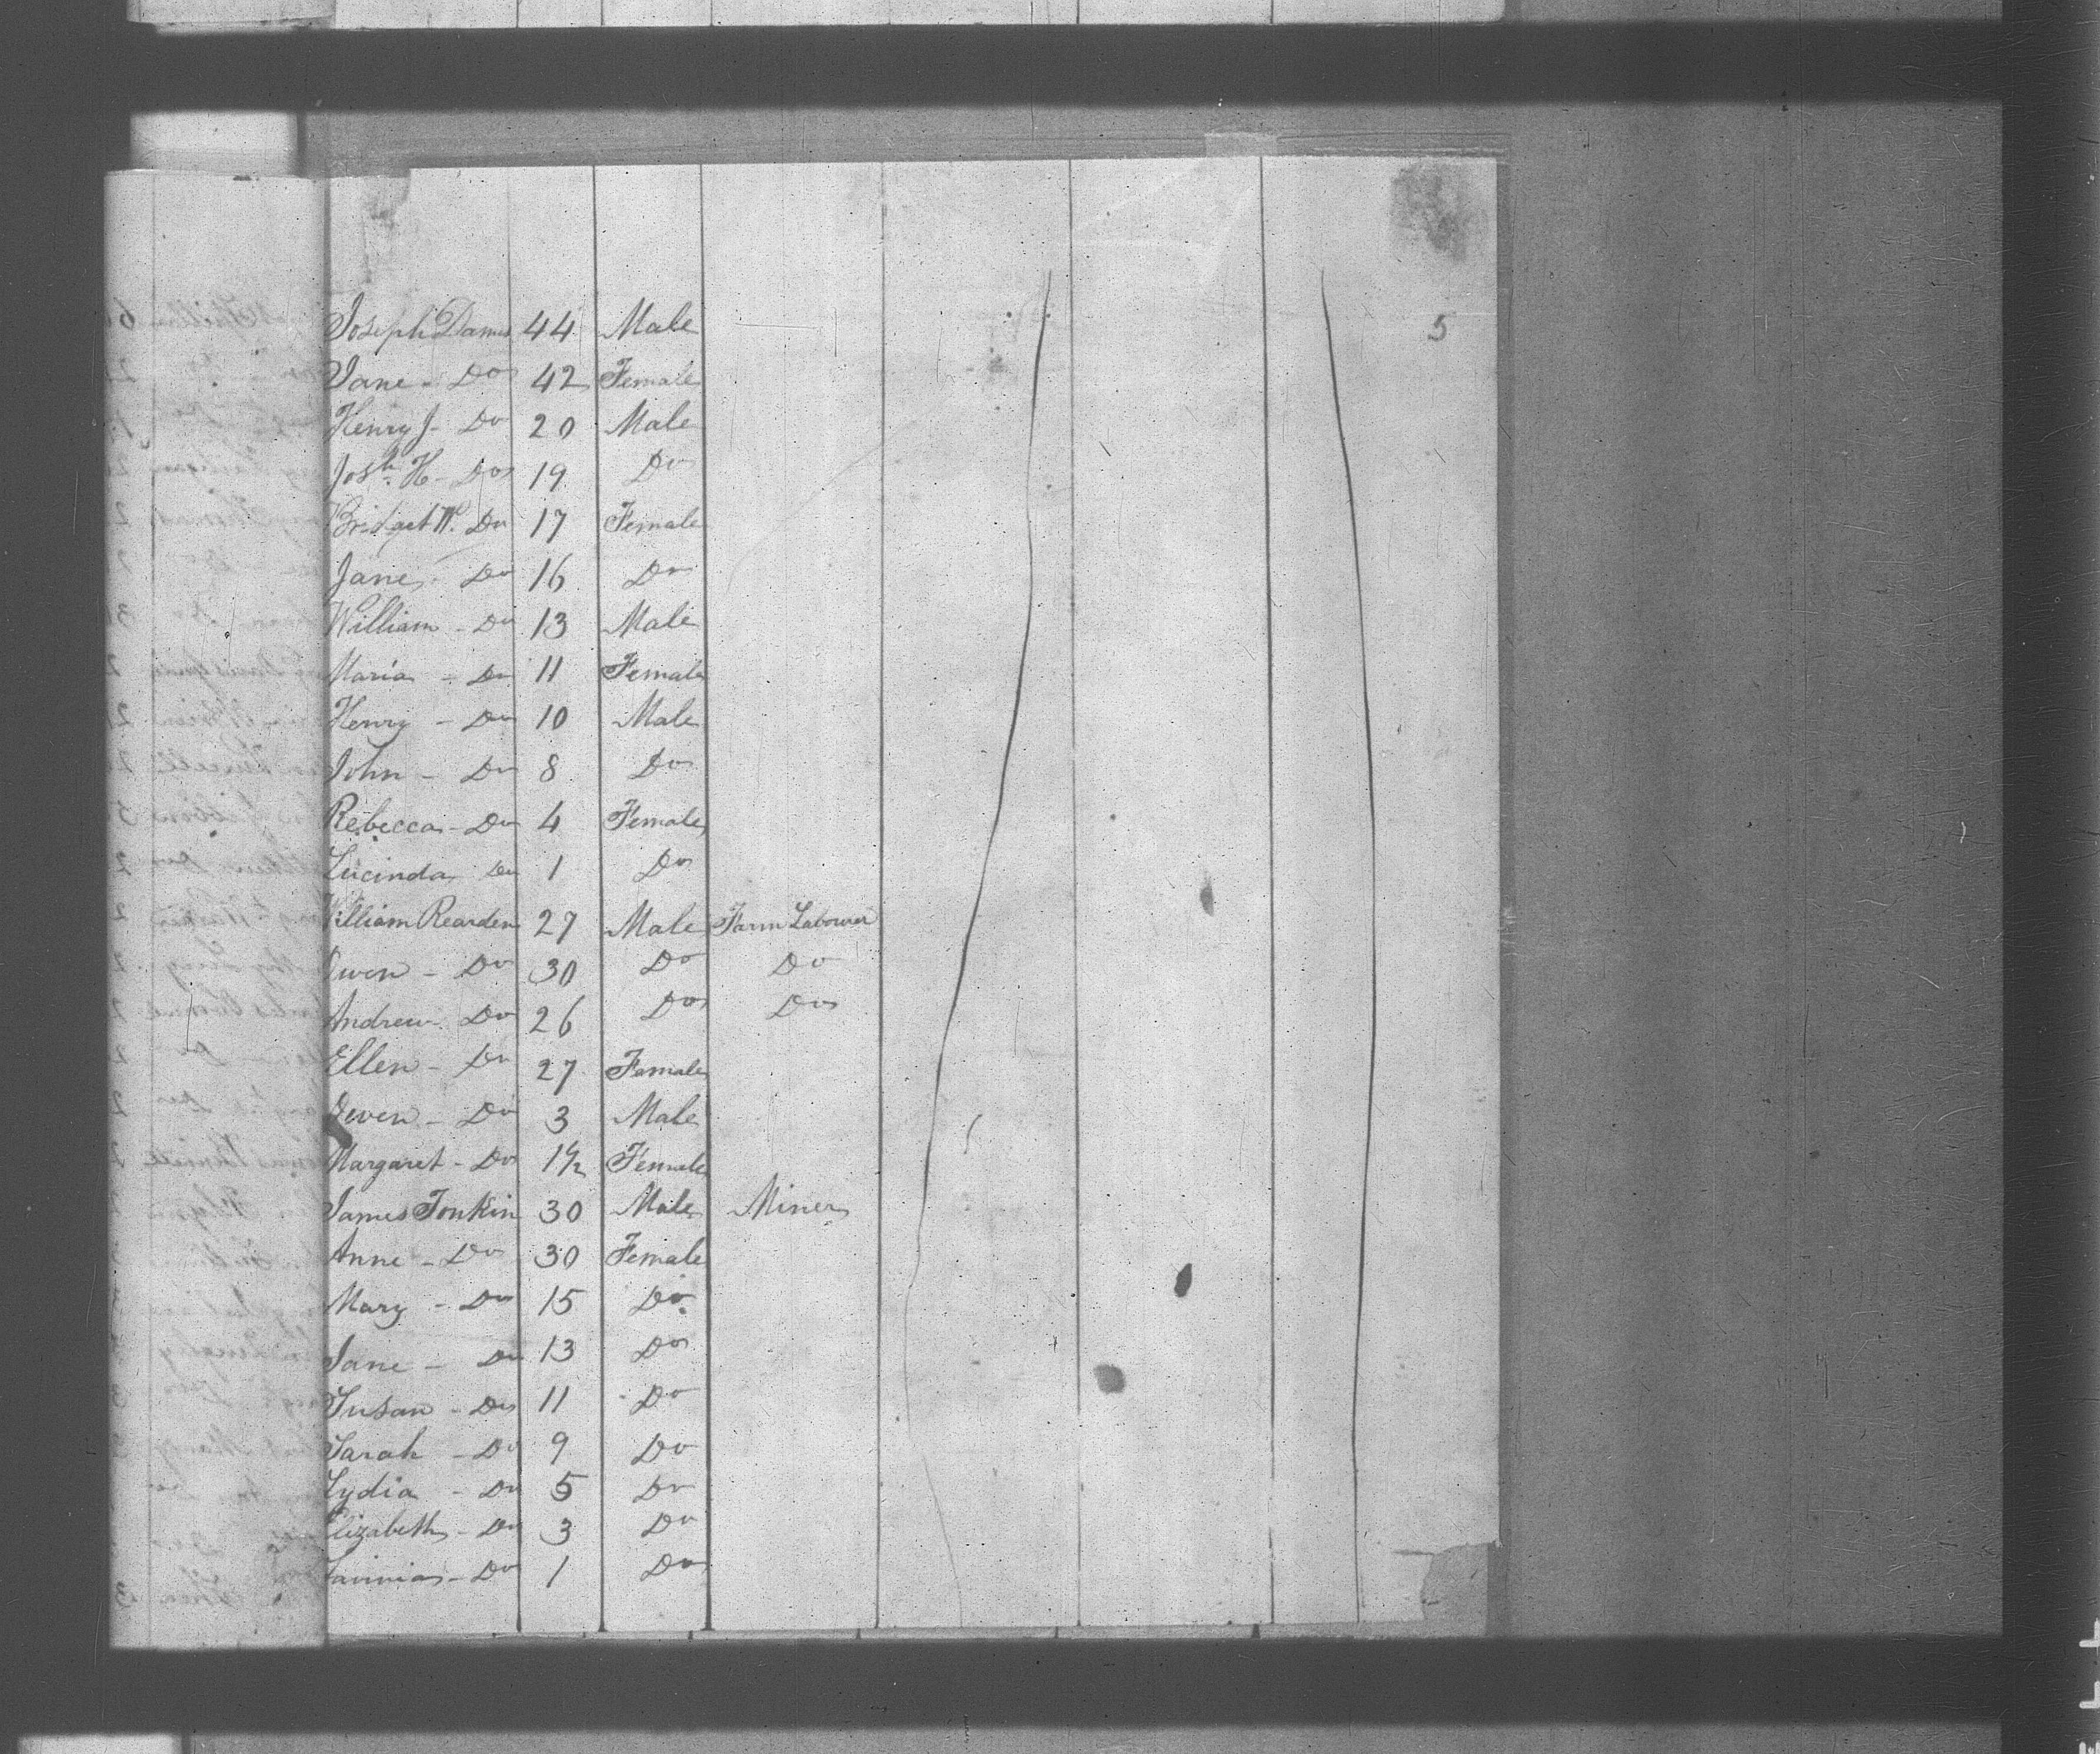 5
Joseph Dames 44 Male
Jane - Do 42 Female
Henry J - Do 20 Male
Josh. H - Do 19 Do
Bridget W. Do 17 Female
Jane - Do 16 Do
William - Do 13 Male
Maria - Do 11 Female
Henry - Do 10 Male
John - Do 8 Do
Rebecca - Do 4 Female
Lucinda Do 1 Do
William Rearden 27 Male Farm Labourer
Owen - Do 30 Do Do
Andrew - Do 26 Do Do
Ellen - Do 27 Famale
Owen - Do 3 Male
Margaret - Do 1½ Female
James Tonkin 30 Male Miner
Anne - Do 30 Female
Mary - Do 15 Do
Jane - Do 13 Do
Susan - Do 11 Do
Sarah - Do 9 Do
Lydia - Do 5 Do
Elizabeth - Do 3 Do
Lavinia - Do 1 Do